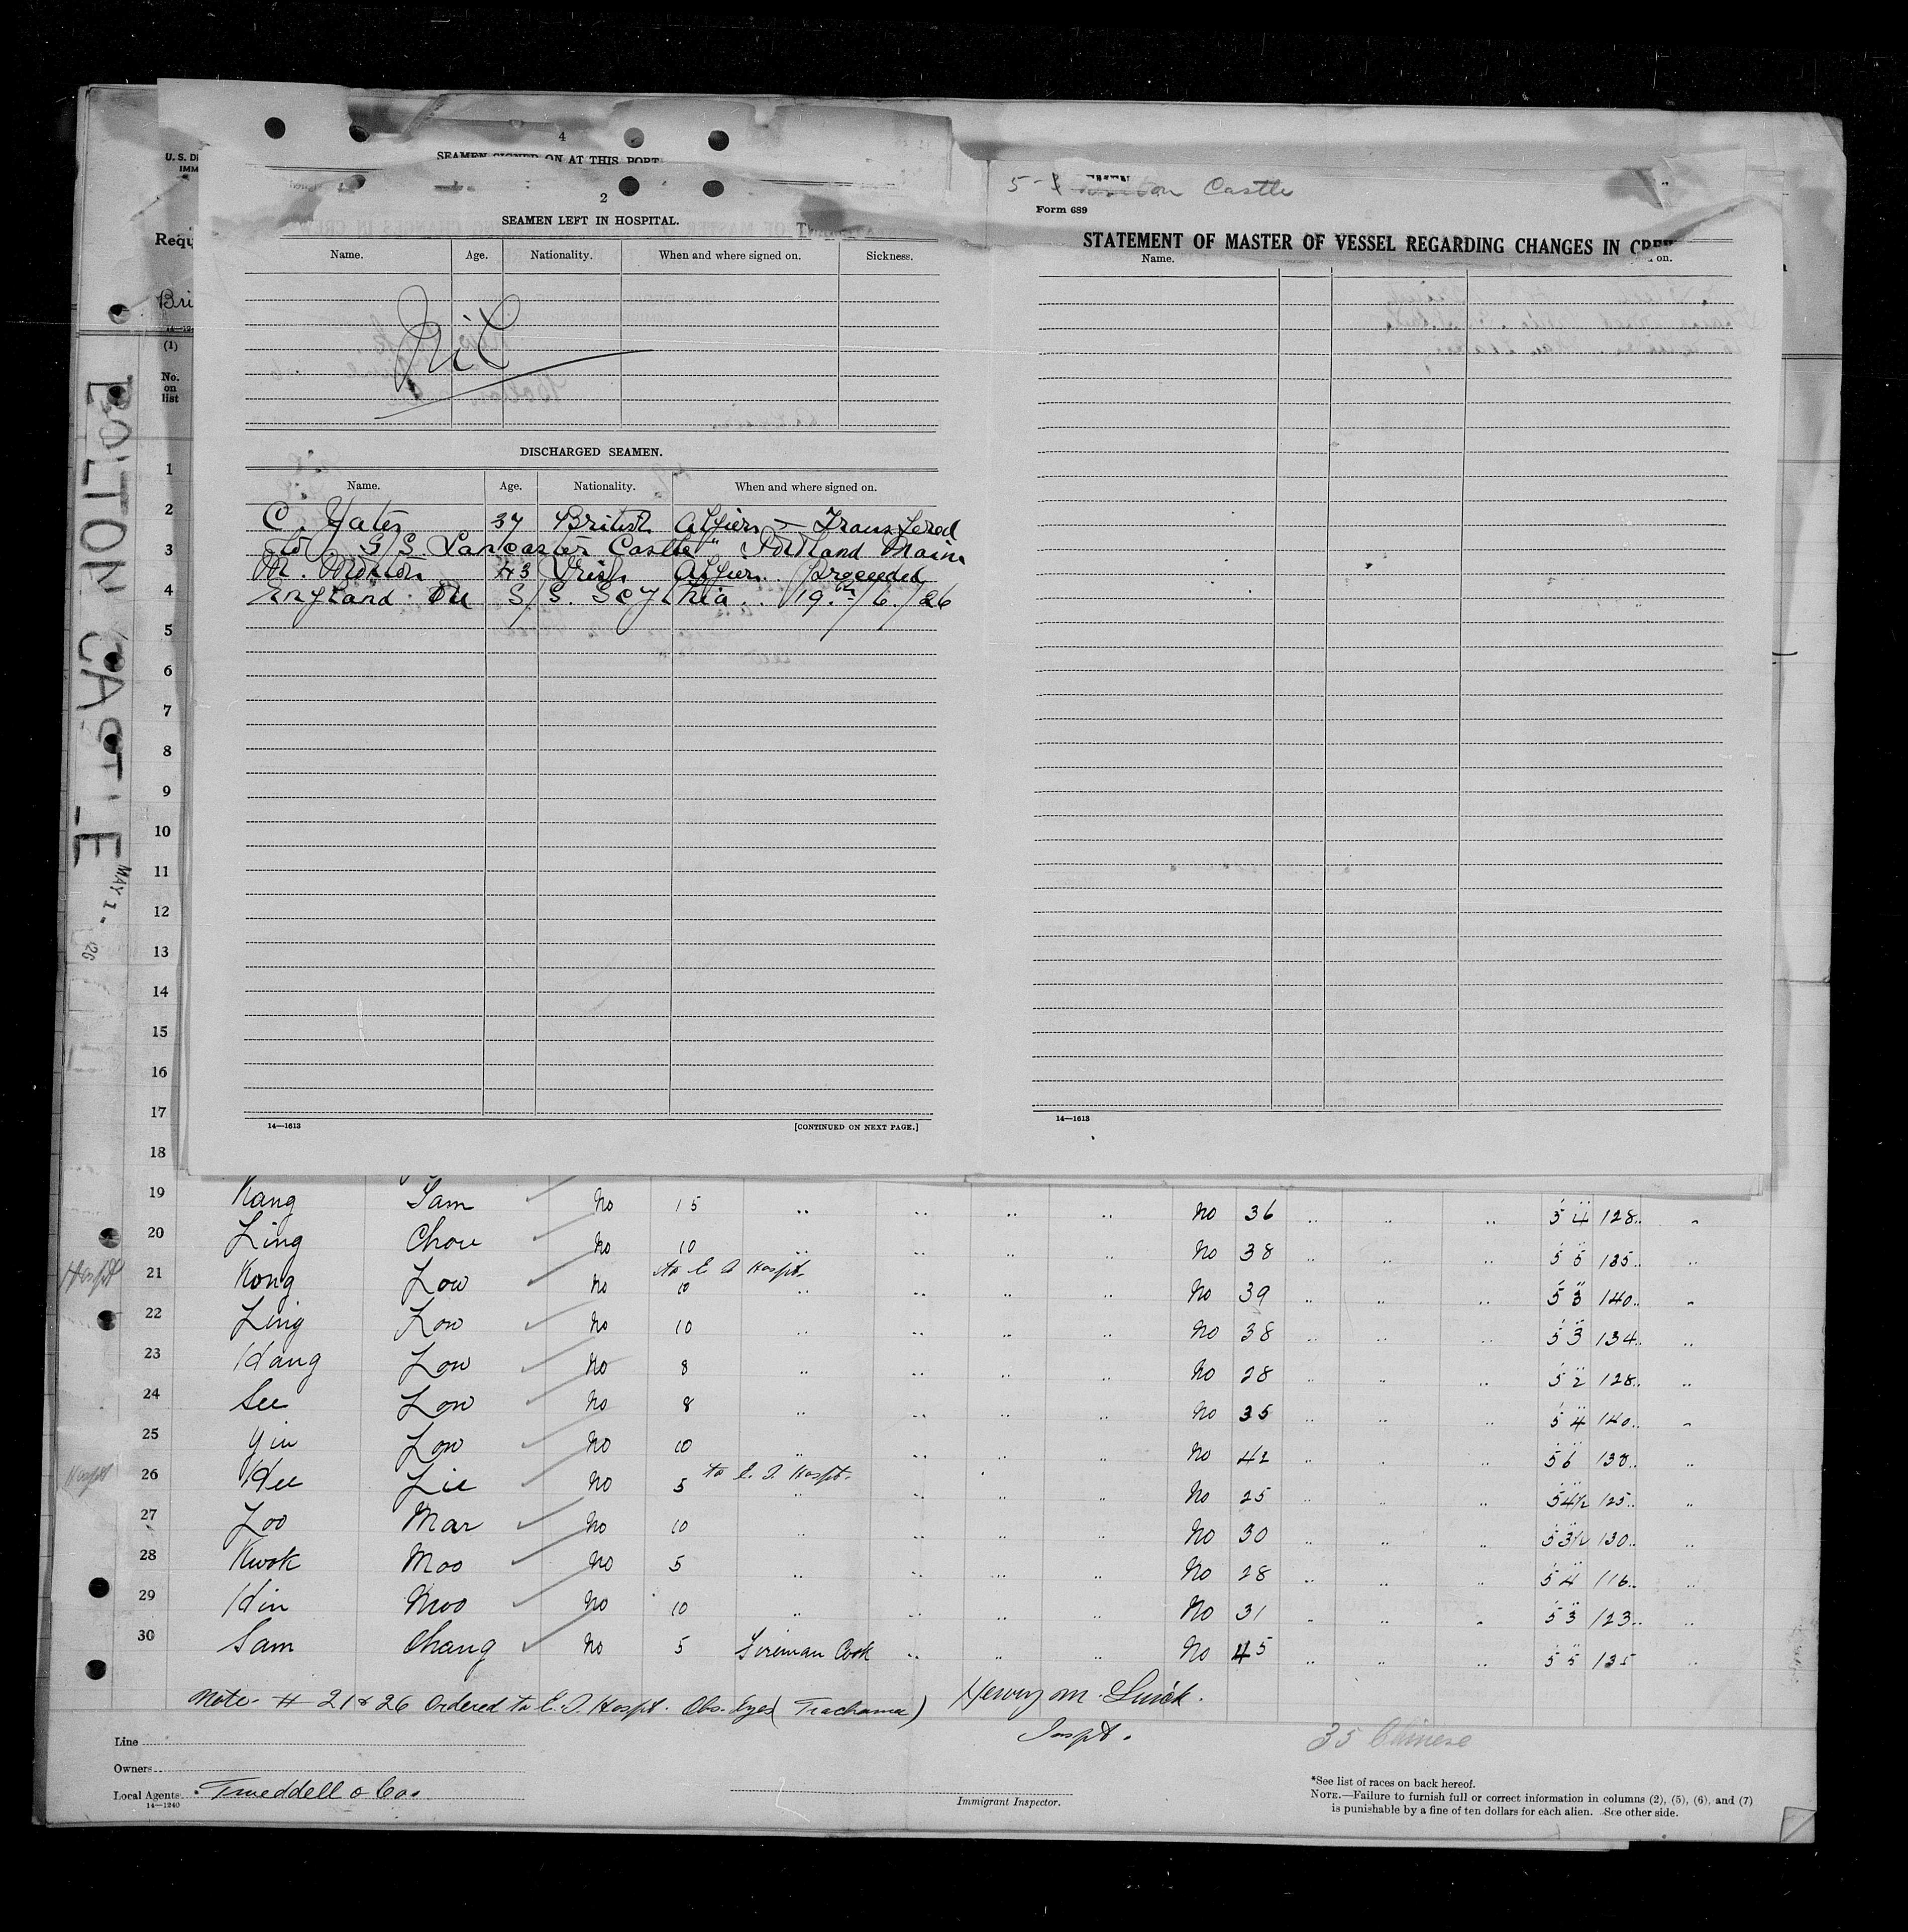 4
SEAMEN SIGNED ON AT THIS PORT
2
SEAMEN LEFT IN HOSPITAL.
Name. Age. Nationality. When and where signed on. Sickness.
Nil
DISCHARGED SEAMEN.
Name. Age. Nationality. When and where signed on.
C. Yates 37 British Algiers - Transfered
to S/S. Lancaster Castle" Portland Maine
M. Morton 43 Irish Algiers. Proceeded
England On S/S. Scythia .. 19th/6/26
14—1613 [CONTINUED ON NEXT PAGE.]
Castle
Form 689
STATEMENT OF MASTER OF VESSEL REGARDING CHANGES IN CREW
Name. on.
14—1613
U. S. DE
IMM
Requ
Bri
(1)
No.
on
list
BOLTON CASTLE
MAY 1. '26
1
2
3
4
5
6
7
8
9
10
11
12
13
14
15
16
17
18
19 Kang Sam No 15 .. .. .. .. No 36 .. .. .. 5' 4" 128 .. ..
20 Ling Chou No 10 .. .. .. .. No 38 .. .. .. 5' 5" 135 .. ..
Hospt 21 Kong Low No 10 to E I Hospt. .. .. .. .. No 39 .. .. .. 5' 3" 140 .. ..
22 Ling Low No 10 .. .. .. .. No 38 .. .. .. 5' 3" 134 .. ..
23 Hang Low No 8 .. .. .. .. No 28 .. .. .. 5' 2" 128 .. ..
24 See Low No 8 .. .. .. .. No 35 .. .. .. 5' 4" 140 .. ..
25 Yiu Low No 10 .. .. .. .. No 42 .. .. .. 5' 6" 138 .. ..
Hospt 26 Hee Lie No 5 to E. I. Hospt. .. .. .. .. No 25 .. .. .. 5' 4½" 125 .. ..
27 Loo Mar No 10 .. .. .. .. No 30 .. .. .. 5' 3½" 130 .. ..
28 Kwok Moo No 5 .. .. .. .. No 28 .. .. .. 5' 4" 116 .. ..
29 Hin Moo No 10 .. .. .. .. No 31 .. .. .. 5' 3" 123 .. ..
30 Sam Chang No 5 Fireman Cook .. .. .. No 45 .. .. .. 5' 5" 135 ..
Note - # 21 & 26 Ordered to E. I. Hospt. Obs. Eyes (Trachoma) Henry M.
Inspt.
35 Chinese
Line
Owners
Local Agents Tweddell & Co.
14—1240
Immigrant Inspector.
*See list of races on back hereof.
NOTE.—Failure to furnish full or correct information in columns (2), (5), (6), and (7)
is punishable by a fine of ten dollars for each alien. See other side.